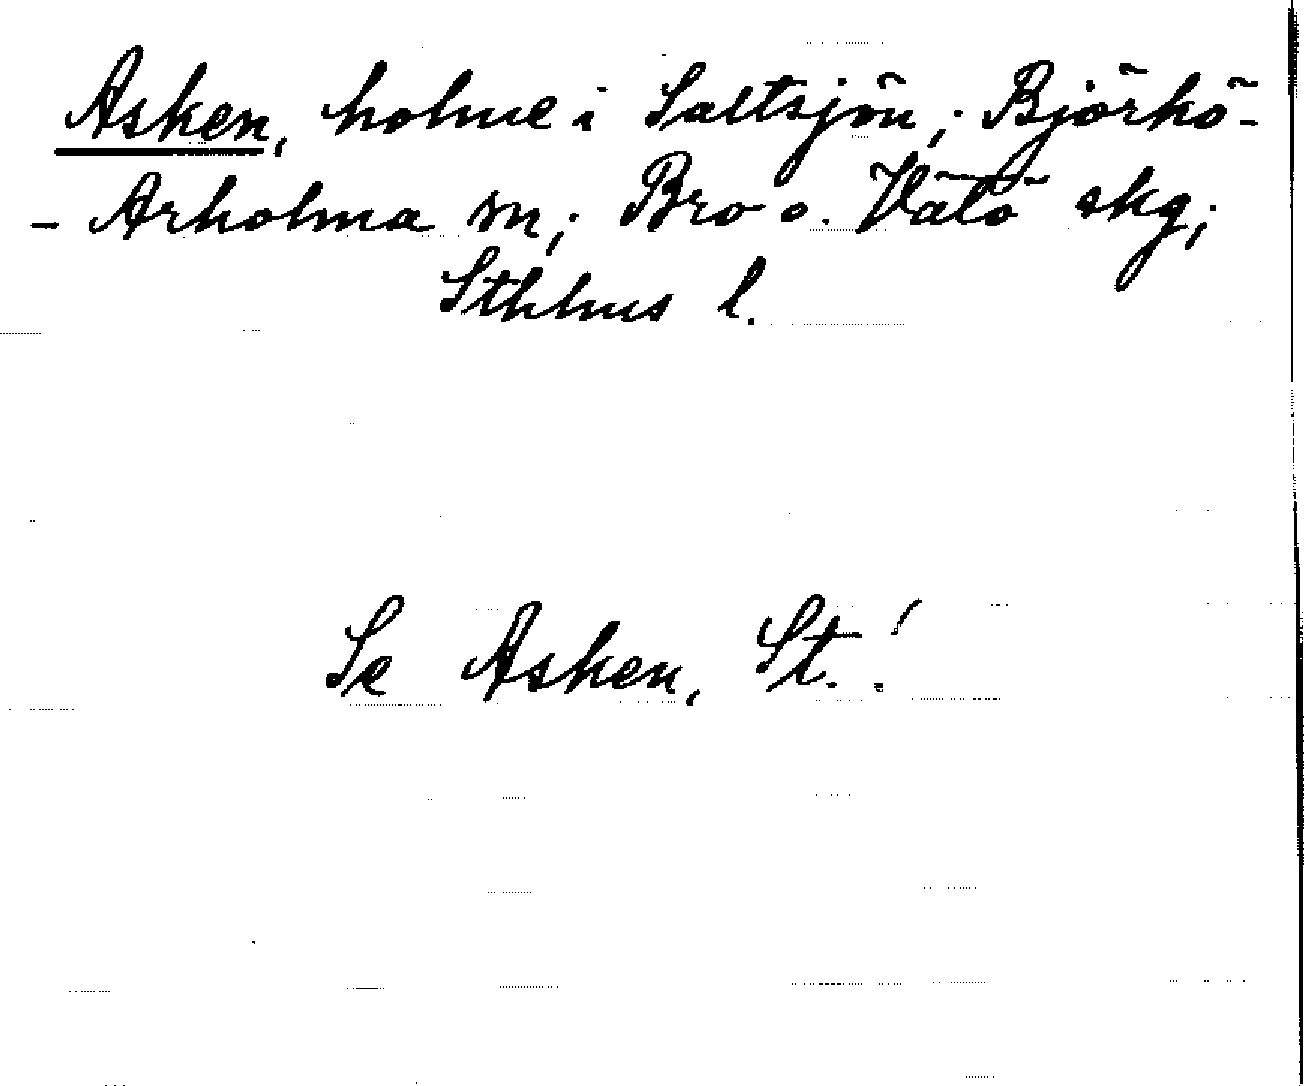 Asken, holme i Saltsjön; Björkö-
- Arholma sn; Bro o. Vätö skg;
Sthlms l.
Se Asken, St.!